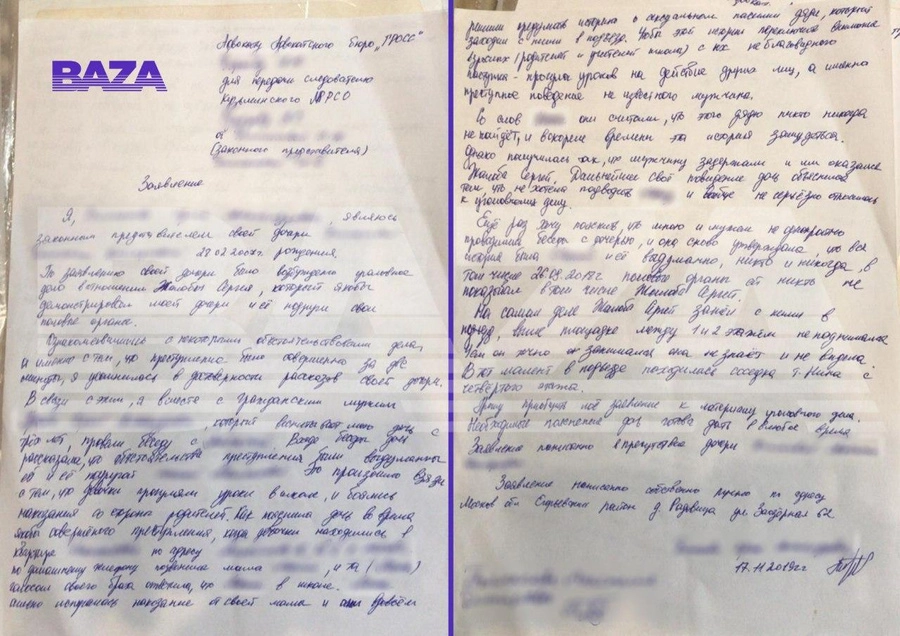 BAZA
Адвокату Адвокатского бюро „ГРОСС"
для передачи следователю
Кузьминского МРСО
от
(Законного представителя)
Заявление
Я, являюсь
законным представителем своей дочери
28.02. рождения.
По заявлению своей дочери было возбуждено уголовное
дело в отношении Жалобы Сергея, который якобы
демонстрировал моей дочери и её подруги свои
половые органы.
Ознакомившись с некоторыми обстоятельствами дела,
и именно с тем, что преступление было совершено за две
минуты, я усомнилась в достверности рассказов своей дочери.
В связи с этим, я вместе с гражданским мужем
который воспитывает мою дочь с
трёх лет, провели беседу с Входе беседы дочь
рассказала, что обстоятельства преступления были выдуманны
её и её подругой Это произошло в связи
с тем, что девочки прогуляли уроки в школе, и боялись
наказания со стороны родителей. Как пояснила дочь во время
якобы совершённого преступления, когда девочки находились в
квартире по адресу
по домашнему телефону позвонила мама и та
голосом своего брата ответила, что в школе.
сильно испугалась наказание от своей мамы и они вдвоём
решили придумать историю о сексуальном насилии дяди, который
заходил с ними в подъезд. Чтобы этой истории переключить внимание
взрослых (родителей и учителей школы) с их не благовидного
поступка - прогула уроков на действие других лиц, а именно
преступное поведение не известного мужчины.
Со слов они считали, что этого дядю никто никогда
не найдёт, и вскоре времени эта история забудеться.
Однако получилось так, что мужчину задержали и им оказался
Жалоба Сергей. Дальнейшее своё поведение дочь объяснила
тем что не хотела подводить и вообще не серьёзно относилась
к уголовному делу.
Ещё раз хочу пояснить что мною и мужем не однократно
проводились беседы с дочерью, и она снова утверждала что вся
история была и её выдуманно, никто и никогда, в
том числе 26.09.2019г половые органы ей никто не
показывал в том числе Жалоба Сергей.
На самом деле Жалоба Сергей зашёл с ними в
подъезд, выше площадки между 1 и 2 этажём не поднимался.
Чем он точно он занимался она не знает и не видела
В тот мамент в подъезде находилась соседка т. Нина с
четвёртого этажа.
Прошу приобщить моё заявление к материалу уголовного дела.
Необходимые пояснение дочь готова дать в любое время
Заявление написанно в присутствие дочери
Заявление написанно собственно ручно по адресу
Москов обл. район д. ул. 62
17.11.2019г